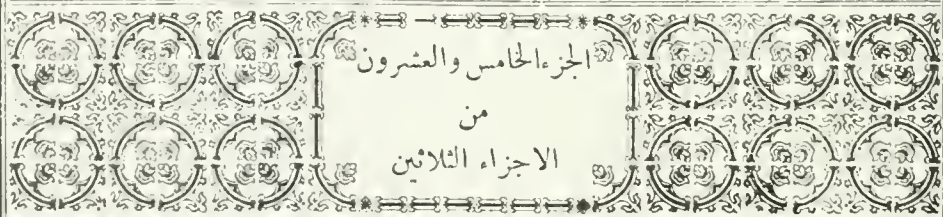 الجزء الخامس والعشرون
من
الاجزاء الثلاثين